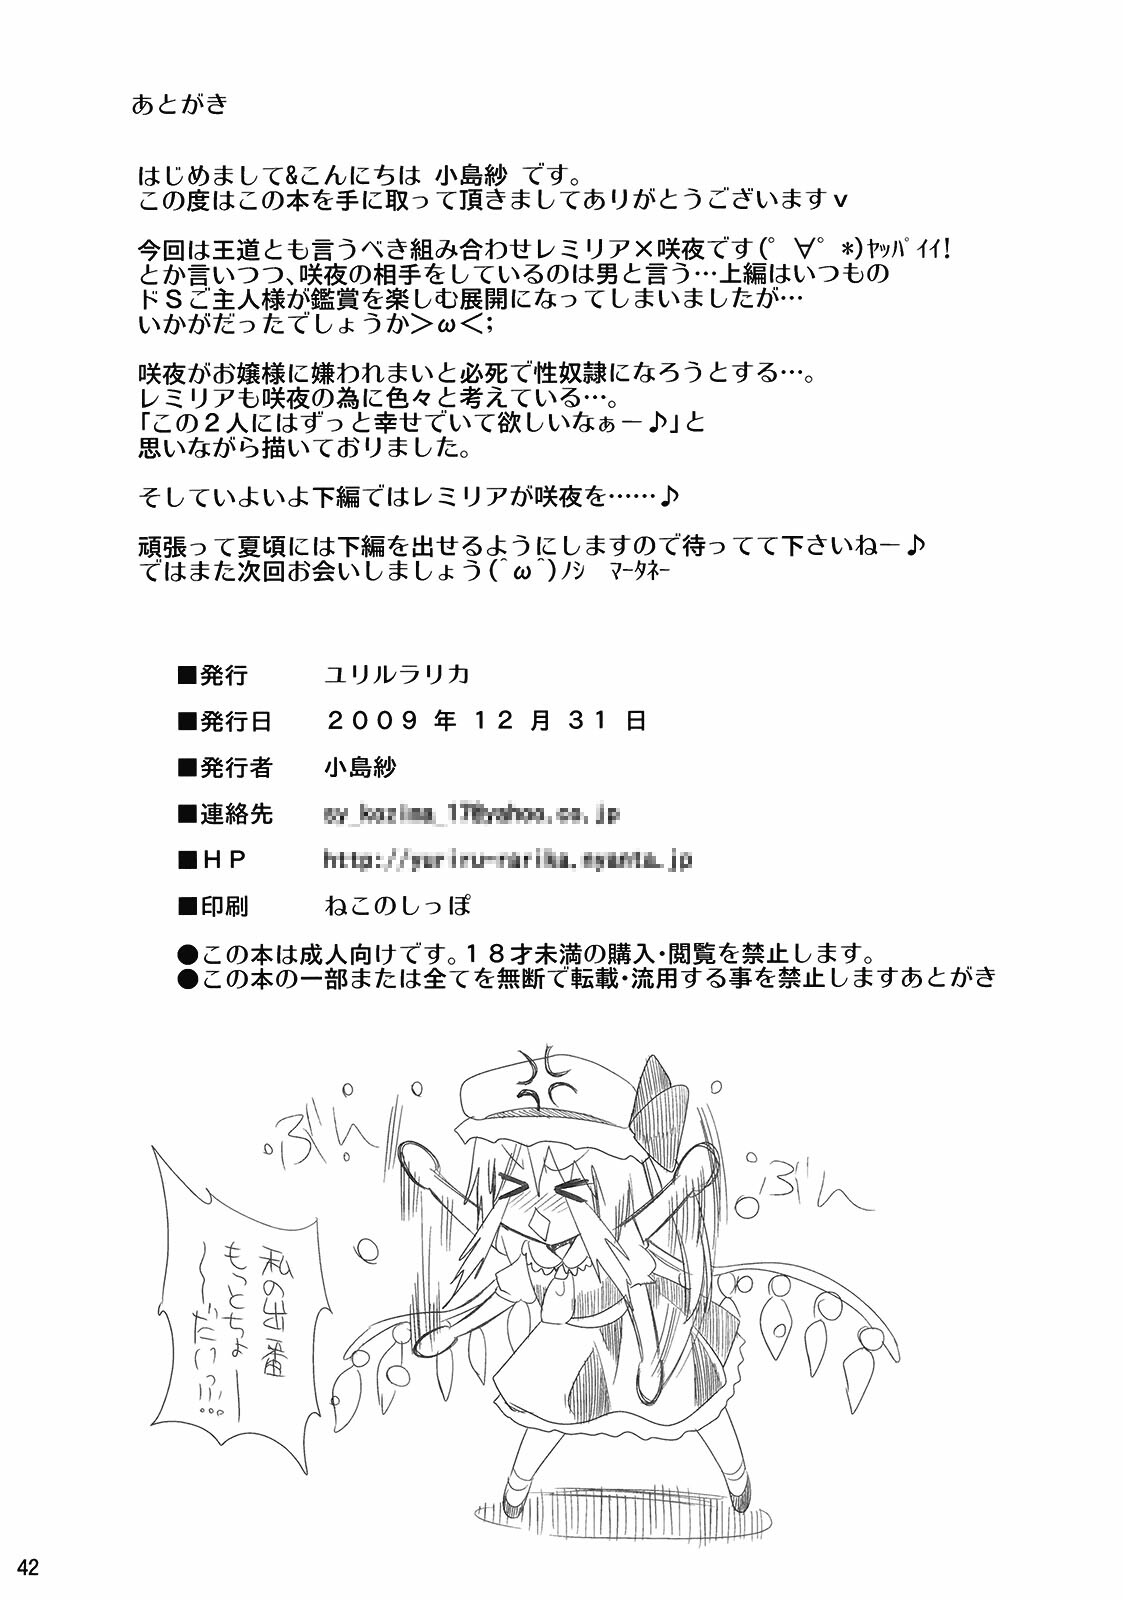 あとがき
はじめまして&こんにちは 小島紗 です。
この度はこの本を手に取って頂きましてありがとうございますｖ
今回は王道とも言うべき組み合わせレミリア×咲夜です(ﾟ∀ﾟ*)ﾔｯﾊﾟｲｲ!
とか言いつつ、咲夜の相手をしているのは男と言う…上編はいつもの
ドＳご主人様が鑑賞を楽しむ展開になってしまいましたが…
いかがだったでしょうか＞ω＜;
咲夜がお嬢様に嫌われまいと必死で性奴隷になろうとする…。
レミリアも咲夜の為に色々と考えている…。
「この２人にはずっと幸せでいて欲しいなぁー♪」と
思いながら描いておりました。
そしていよいよ下編ではレミリアが咲夜を……♪
頑張って夏頃には下編を出せるようにしますので待ってて下さいねー♪
ではまた次回お会いしましょう(^ω^)ﾉｼ　ﾏｰﾀﾈｰ
■発行　ユリルラリカ
■発行日　２００９ 年 １２ 月 ３１ 日
■発行者　小島紗
■連絡先
■ＨＰ
■印刷　ねこのしっぽ
●この本は成人向けです。１８才未満の購入・閲覧を禁止します。
●この本の一部または全てを無断で転載・流用する事を禁止しますあとがき
ぶん
ぶん
私の出番
もっとちょー
〜〜だいっ!!…
42